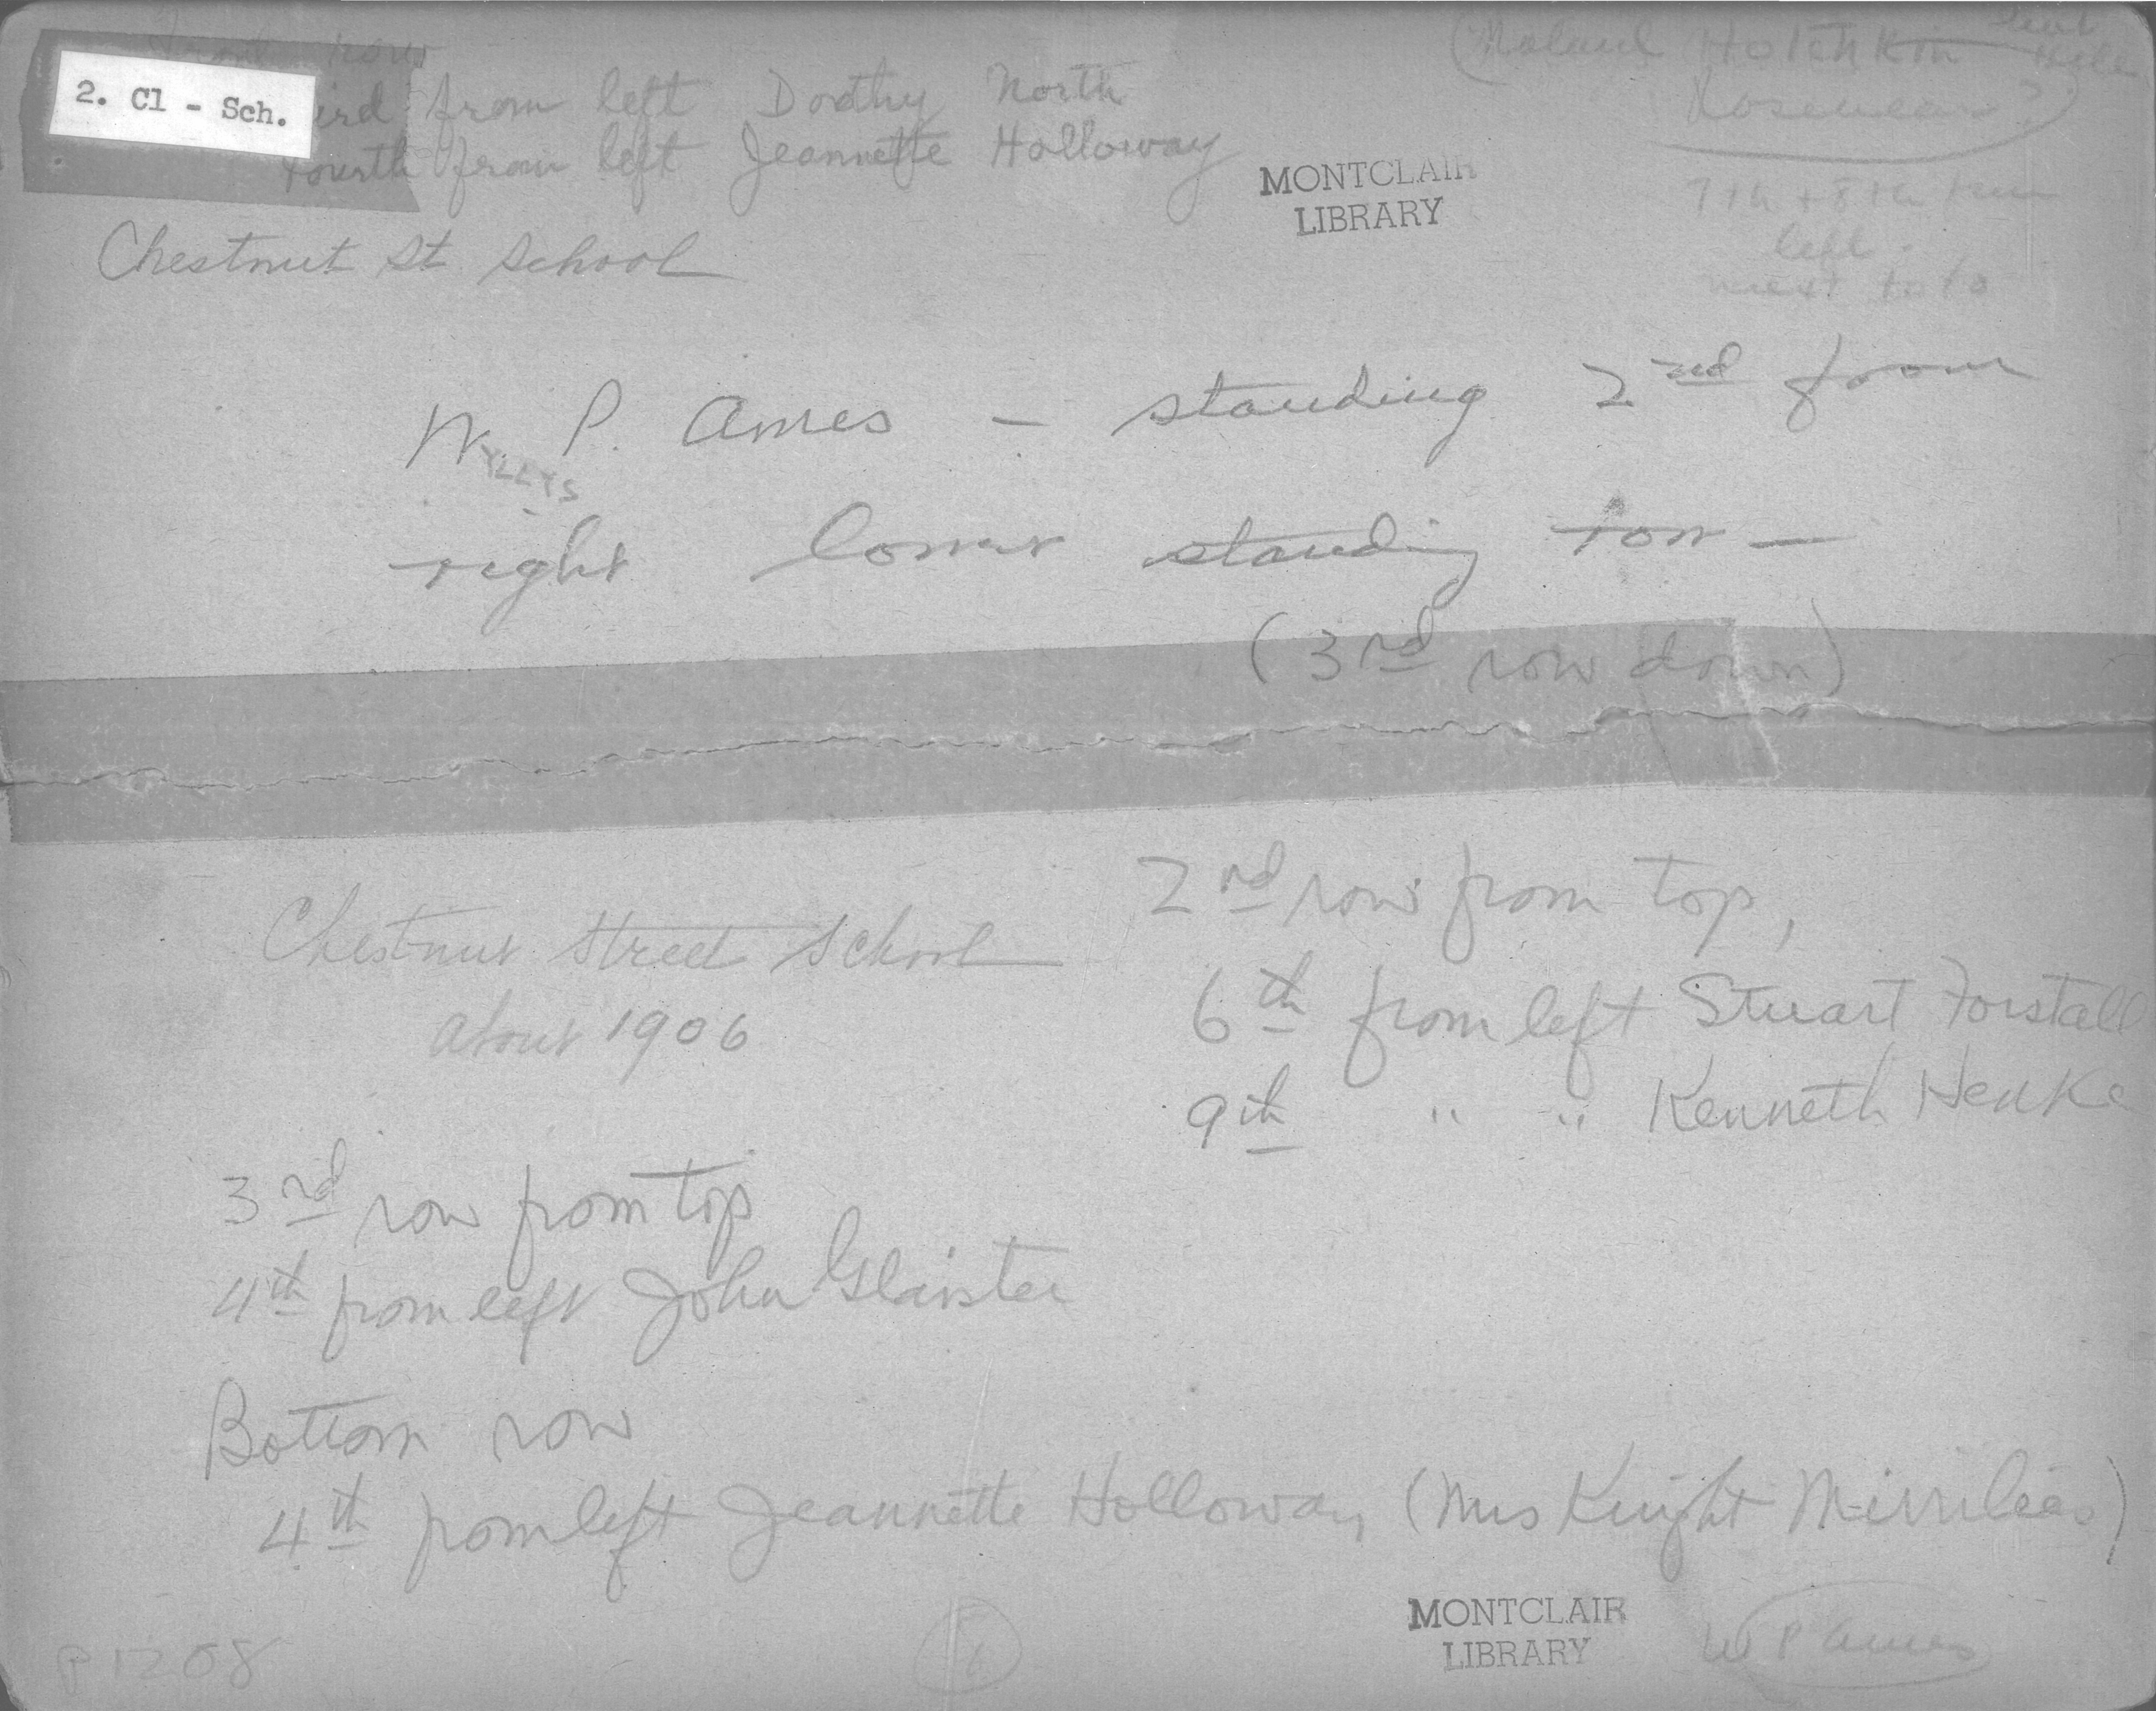 front row
2. Cl - Sch.
ird from left Dorothy North
Fourth from left Jeannette Holloway
Hotchkin
MONTCLAIR
LIBRARY
7th + 8th from
left
next to to
Chestnut St School
W. P. Ames - standing 2nd from
YLLYS
right lower standing row -
(3rd row down)
2nd row from top,
6th from left Stuart Forstall
9th " " Kenneth Henke
Chestnut Street School
about 1906
3rd row from top
4th from left John Glaister
Bottom row
4th from left Jeannette Holloway (Mrs Knight Merrilees)
MONTCLAIR
LIBRARY
W P Ames
P 1208